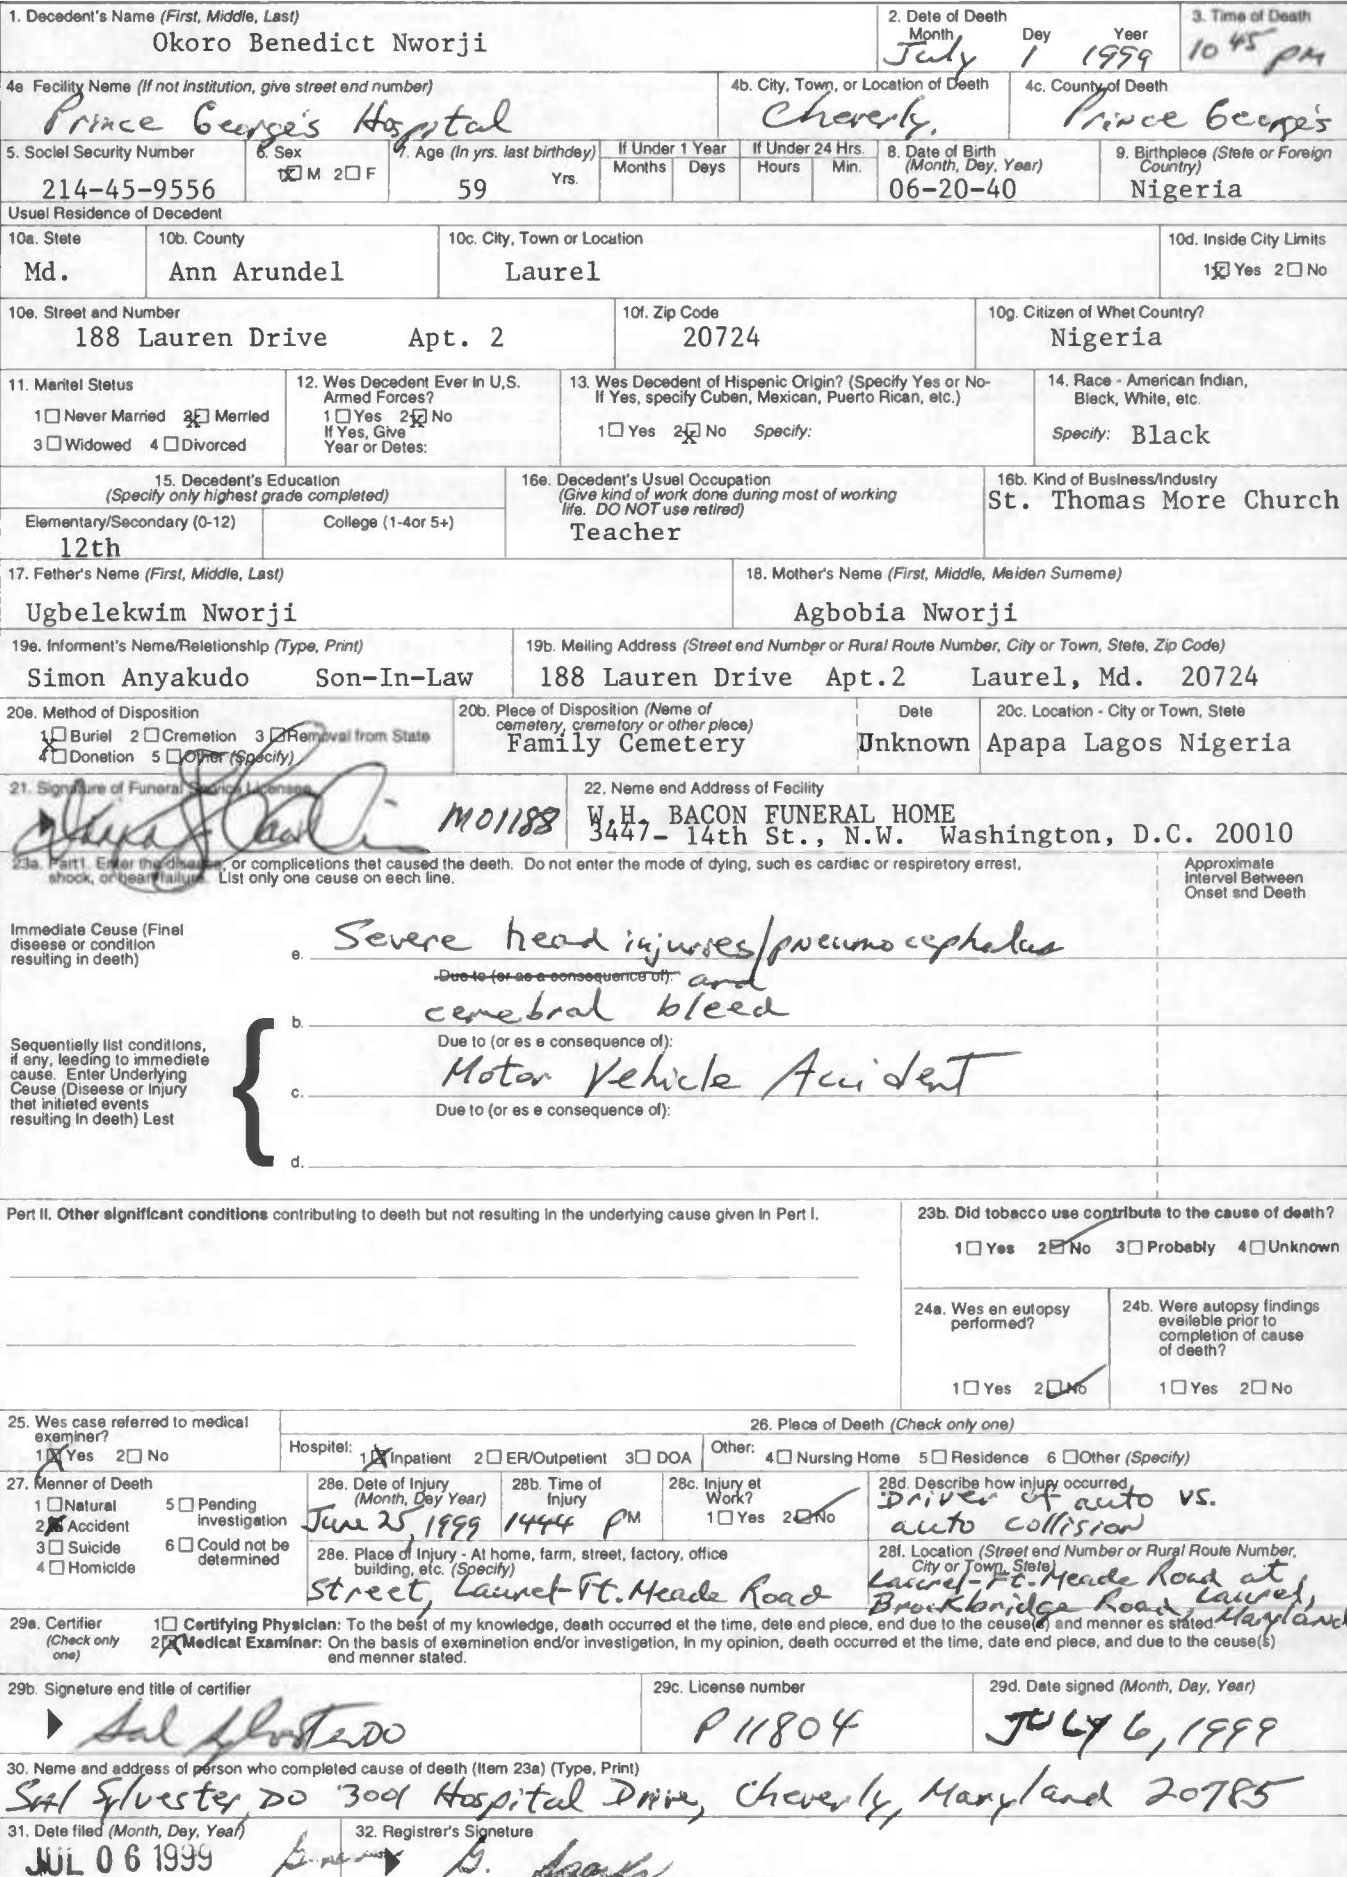 1. Decedent's Name (First, Middle, Last)
Okoro Benedict Nworji
2. Date of Death
Month Day Year
July 1 1999
3. Time of Death
10 45 PM
4a Facility Name (If not institution, give street and number)
Prince George's Hospital
4b. City, Town, or Location of Death
Cheverly,
4c. County of Death
Prince George's
5. Social Security Number
214-45-9556
6. Sex
1☒ M 2☐ F
7. Age (In yrs. last birthday)
59 Yrs.
If Under 1 Year
Months Days
If Under 24 Hrs.
Hours Min.
8. Date of Birth
(Month, Day, Year)
06-20-40
9. Birthplace (State or Foreign
Country)
Nigeria
Usual Residence of Decedent
10a. State
Md.
10b. County
Ann Arundel
10c. City, Town or Location
Laurel
10d. Inside City Limits
1☒ Yes 2☐ No
10e. Street and Number
188 Lauren Drive Apt. 2
10f. Zip Code
20724
10g. Citizen of What Country?
Nigeria
11. Marital Status
1☐ Never Married 2☒ Married
3☐ Widowed 4☐ Divorced
12. Was Decedent Ever in U.S.
Armed Forces?
1☐ Yes 2☒ No
If Yes, Give
Year or Dates:
13. Was Decedent of Hispanic Origin? (Specify Yes or No-
If Yes, specify Cuban, Mexican, Puerto Rican, etc.)
1☐ Yes 2☒ No Specify:
14. Race - American Indian,
Black, White, etc.
Specify: Black
15. Decedent's Education
(Specify only highest grade completed)
Elementary/Secondary (0-12)
12th
College (1-4or 5+)
16a. Decedent's Usual Occupation
(Give kind of work done during most of working
life. DO NOT use retired)
Teacher
16b. Kind of Business/Industry
St. Thomas More Church
17. Father's Name (First, Middle, Last)
Ugbelekwim Nworji
18. Mother's Name (First, Middle, Maiden Surname)
Agbobia Nworji
19a. Informant's Name/Relationship (Type, Print)
Simon Anyakudo Son-In-Law
19b. Mailing Address (Street and Number or Rural Route Number, City or Town, State, Zip Code)
188 Lauren Drive Apt.2 Laurel, Md. 20724
20a. Method of Disposition
1☒ Burial 2☐ Cremation 3☒ Removal from State
4☐ Donation 5☐ Other (Specify)
20b. Place of Disposition (Name of
cemetery, crematory or other place)
Family Cemetery
Date
Unknown
20c. Location - City or Town, State
Apapa Lagos Nigeria
21. Signature of Funeral Service Licensee
M01188
22. Name and Address of Facility
W.H. BACON FUNERAL HOME
3447- 14th St., N.W. Washington, D.C. 20010
23a. Part I. Enter the disease, or complications that caused the death. Do not enter the mode of dying, such as cardiac or respiratory arrest,
shock, or heart failure. List only one cause on each line.
Approximate
Interval Between
Onset and Death
Immediate Cause (Final
disease or condition
resulting in death)
a. Severe head injuries/pneumocephalus
Due to (or as a consequence of): and
b. cerebral bleed
Due to (or as a consequence of):
Sequentially list conditions,
if any, leading to immediate
cause. Enter Underlying
Cause (Disease or Injury
that initiated events
resulting in death) Last
c. Motor Vehicle Accident
Due to (or as a consequence of):
d.
Part II. Other significant conditions contributing to death but not resulting in the underlying cause given in Part I.
23b. Did tobacco use contribute to the cause of death?
1☐ Yes 2☒ No 3☐ Probably 4☐ Unknown
24a. Was an autopsy
performed?
1☐ Yes 2☒ No
24b. Were autopsy findings
available prior to
completion of cause
of death?
1☐ Yes 2☐ No
25. Was case referred to medical
examiner?
1☒ Yes 2☐ No
26. Place of Death (Check only one)
Hospital: 1☒ Inpatient 2☐ ER/Outpatient 3☐ DOA
Other: 4☐ Nursing Home 5☐ Residence 6☐ Other (Specify)
27. Manner of Death
1☐ Natural 5☐ Pending
investigation
2☒ Accident
3☐ Suicide 6☐ Could not be
determined
4☐ Homicide
28a. Date of Injury
(Month, Day Year)
June 25, 1999
28b. Time of
Injury
1444 PM
28c. Injury at
Work?
1☐ Yes 2☒ No
28d. Describe how injury occurred
Driver of auto vs.
auto collision
28e. Place of Injury - At home, farm, street, factory, office
building, etc. (Specify)
Street, Laurel-Ft. Meade Road
28f. Location (Street and Number or Rural Route Number,
City or Town, State)
Laurel-Ft. Meade Road at
Brockbridge Road, Laurel,
Maryland
29a. Certifier
(Check only
one)
1☐ Certifying Physician: To the best of my knowledge, death occurred at the time, date and place, and due to the cause(s) and manner as stated.
2☒ Medical Examiner: On the basis of examination and/or investigation, in my opinion, death occurred at the time, date and place, and due to the cause(s)
and manner stated.
29b. Signature and title of certifier
Sal Sylvester DO
29c. License number
P11804
29d. Date signed (Month, Day, Year)
JULY 6, 1999
30. Name and address of person who completed cause of death (Item 23a) (Type, Print)
Sal Sylvester, DO 3001 Hospital Drive, Cheverly, Maryland 20785
31. Date filed (Month, Day, Year)
JUL 06 1999
32. Registrar's Signature